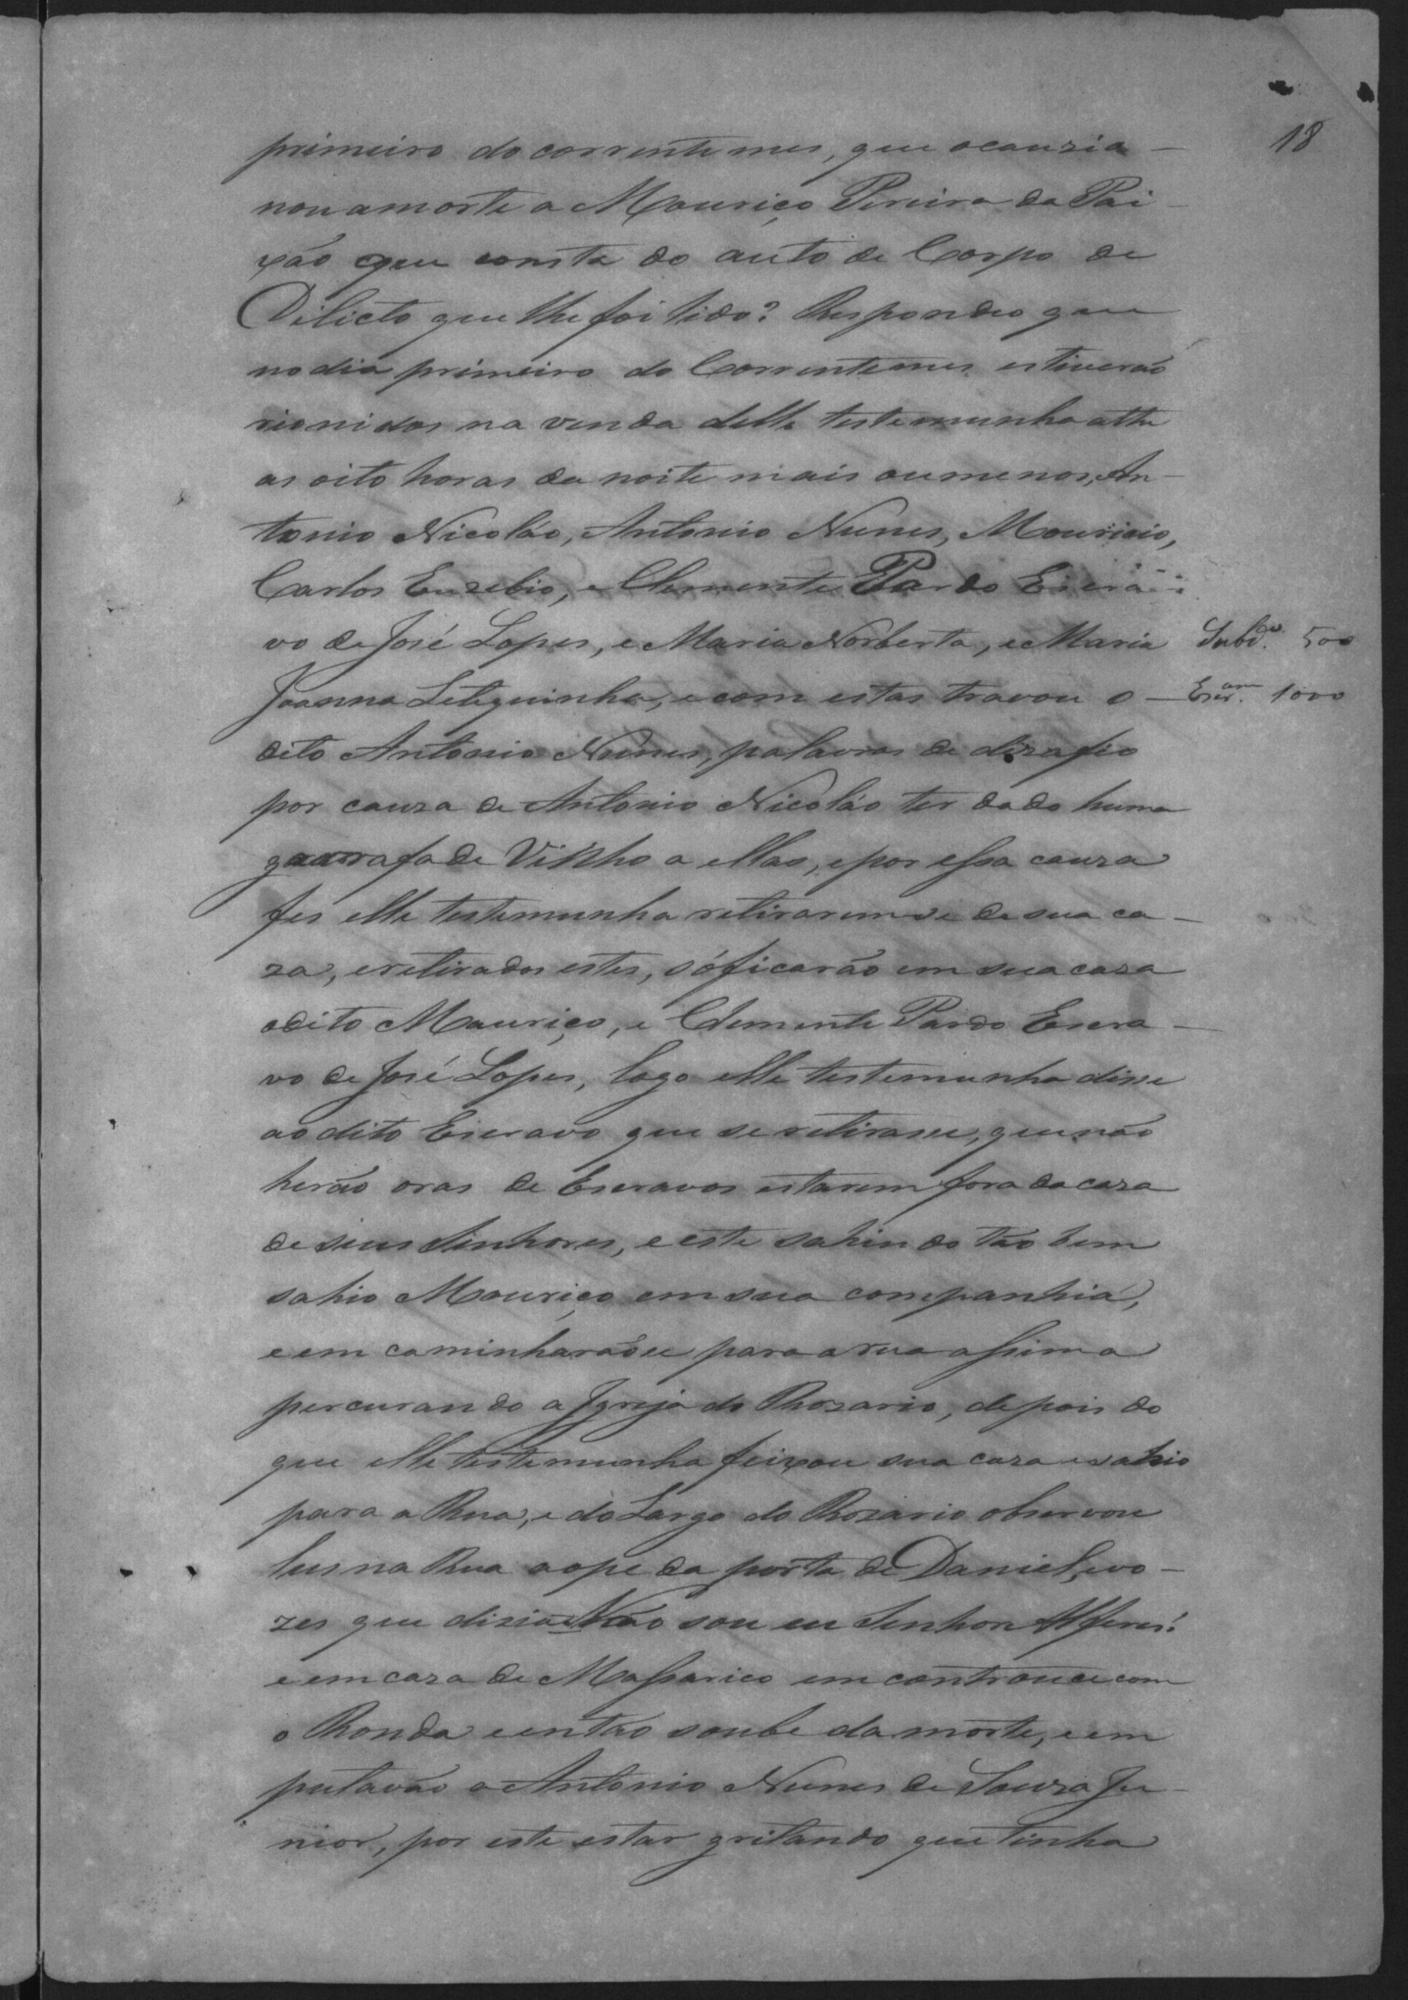 18
primeiro do corrente mes, que acauzia-
nou a morte a Mauriço Pereira da Pai-
xão que consta do auto de Corpo de
Dilicto que lhe foi lido? Respondeo que
no dia primeiro do Corrente mes estiverão
rionidos na venda delle testemunha athe
as oito horas da noite mais ou menos, An-
tonio Nicoláo, Antonio Nunes, Mouricio,
Carlos Euzebio, e Clemente Pardo Escra-
vo de José Lopes, e Maria Norberta, e Maria
Subdo. 500
Joanna Letiguinha, e com estas travou o
Escram. 1000
dito Antonio Nunes, palavras de dizafio
por cauza de Antonio Nicoláo ter dado huma
garrafa de Vinho a ellas, e por essa cauza
fes elle testemunha retirarem-se de sua ca-
za, e retirados estes, só ficarão em sua caza
o dito Mauriço, e Clemente Pardo Escra-
vo de José Lopes, logo elle testemunha disse
ao dito Escravo que se retirasse, que não
herão oras de Escravos estarem fora da caza
de seus Senhores, e este sahindo tão bem
sahio Mouriço em sua companhia,
e em caminharãose para a rua assima
percurando a Igreja do Rozario, depois do
que elle testemunha feixou sua caza e sahio
para a Rua, e do Largo do Rozario observou
lus na Rua ao pe da porta de Daniel, e vo-
zes que dizia Não sou eu Senhor Alferes!
e em caza de Massarico em controuce com
o Ronda e então soube da morte, e em
putavão a Antonio Nunes de Souza Ju-
nior, por este estar gritando que tinha